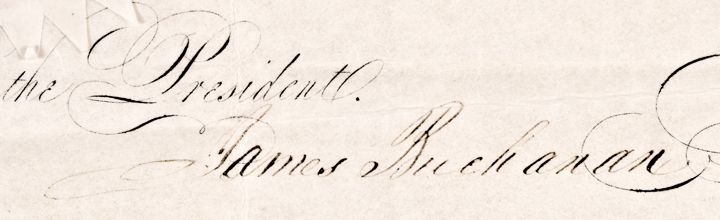 the President.
James Buchanan